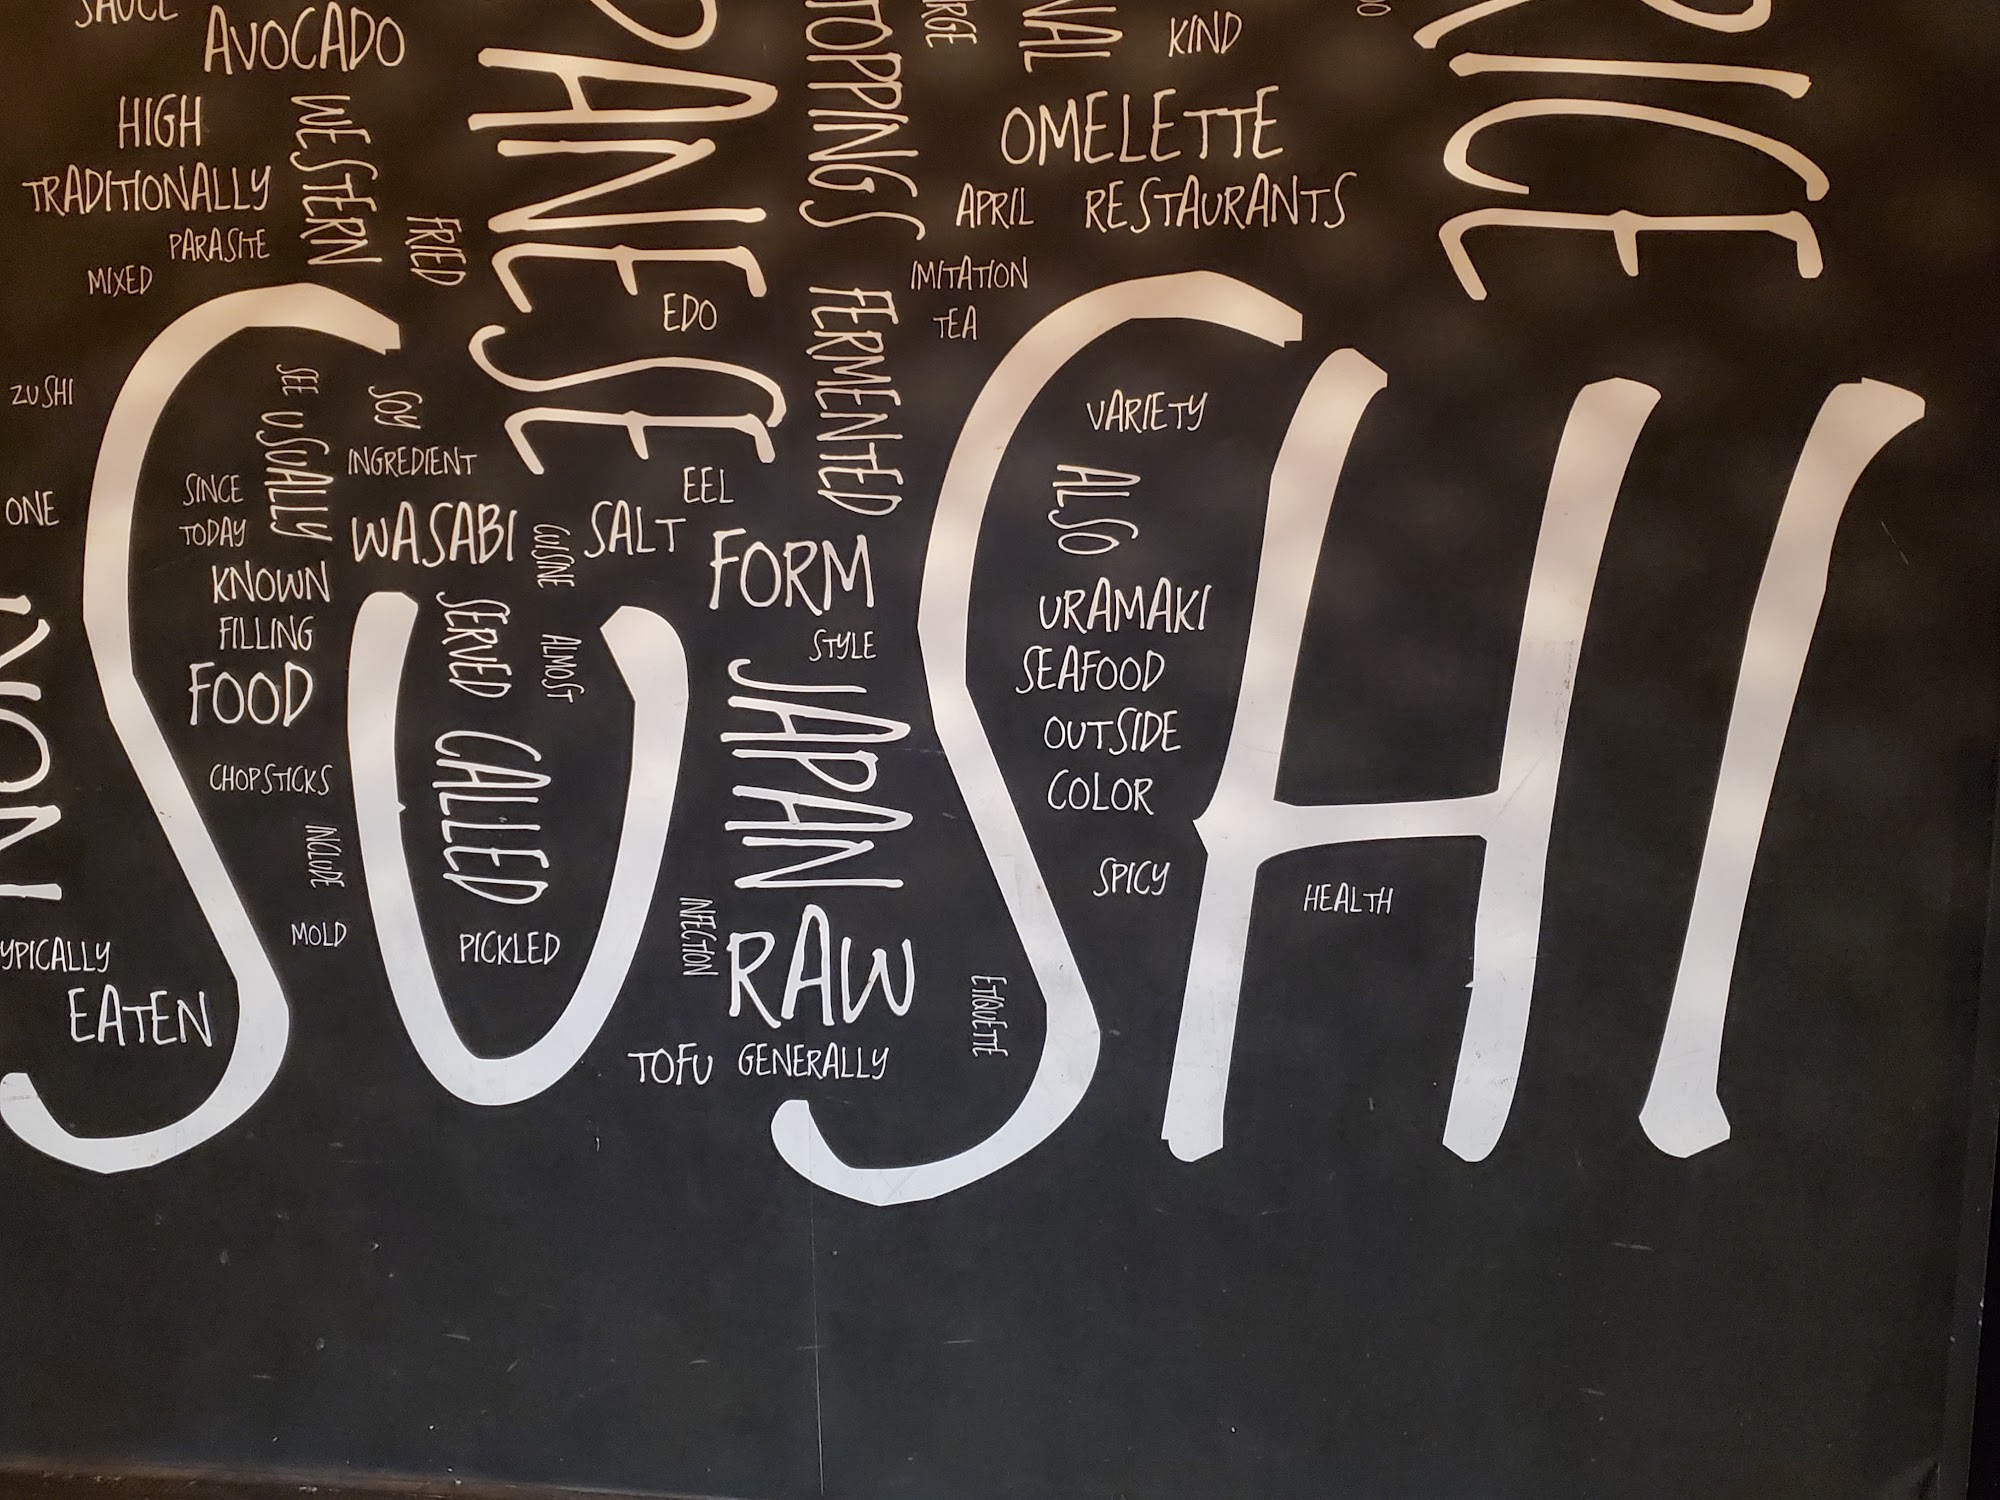 SAUCE
AVOCADO
TOPPINGS
KIND
RICE
HIGH
WESTERN
OMELETTE
TRADITIONALLY
APRIL
RESTAURANTS
PARASITE
FRIED
MIXED
EDO
IMITATION
TEA
FERMENTED
ZUSHI
SEE
USUALLY
SOY
INGREDIENT
VARIETY
ALSO
SINCE
TODAY
ONE
WASABI
CUISINE
SALT
EEL
FORM
KNOWN
FILLING
FOOD
SERVED
ALMOST
STYLE
URAMAKI
SEAFOOD
OUTSIDE
COLOR
JAPAN
CALLED
CHOPSTICKS
INCLUDE
MOLD
PICKLED
INFECTION
RAW
SPICY
HEALTH
NORI
EATEN
ETIQUETTE
TOFU
GENERALLY
SUSHI